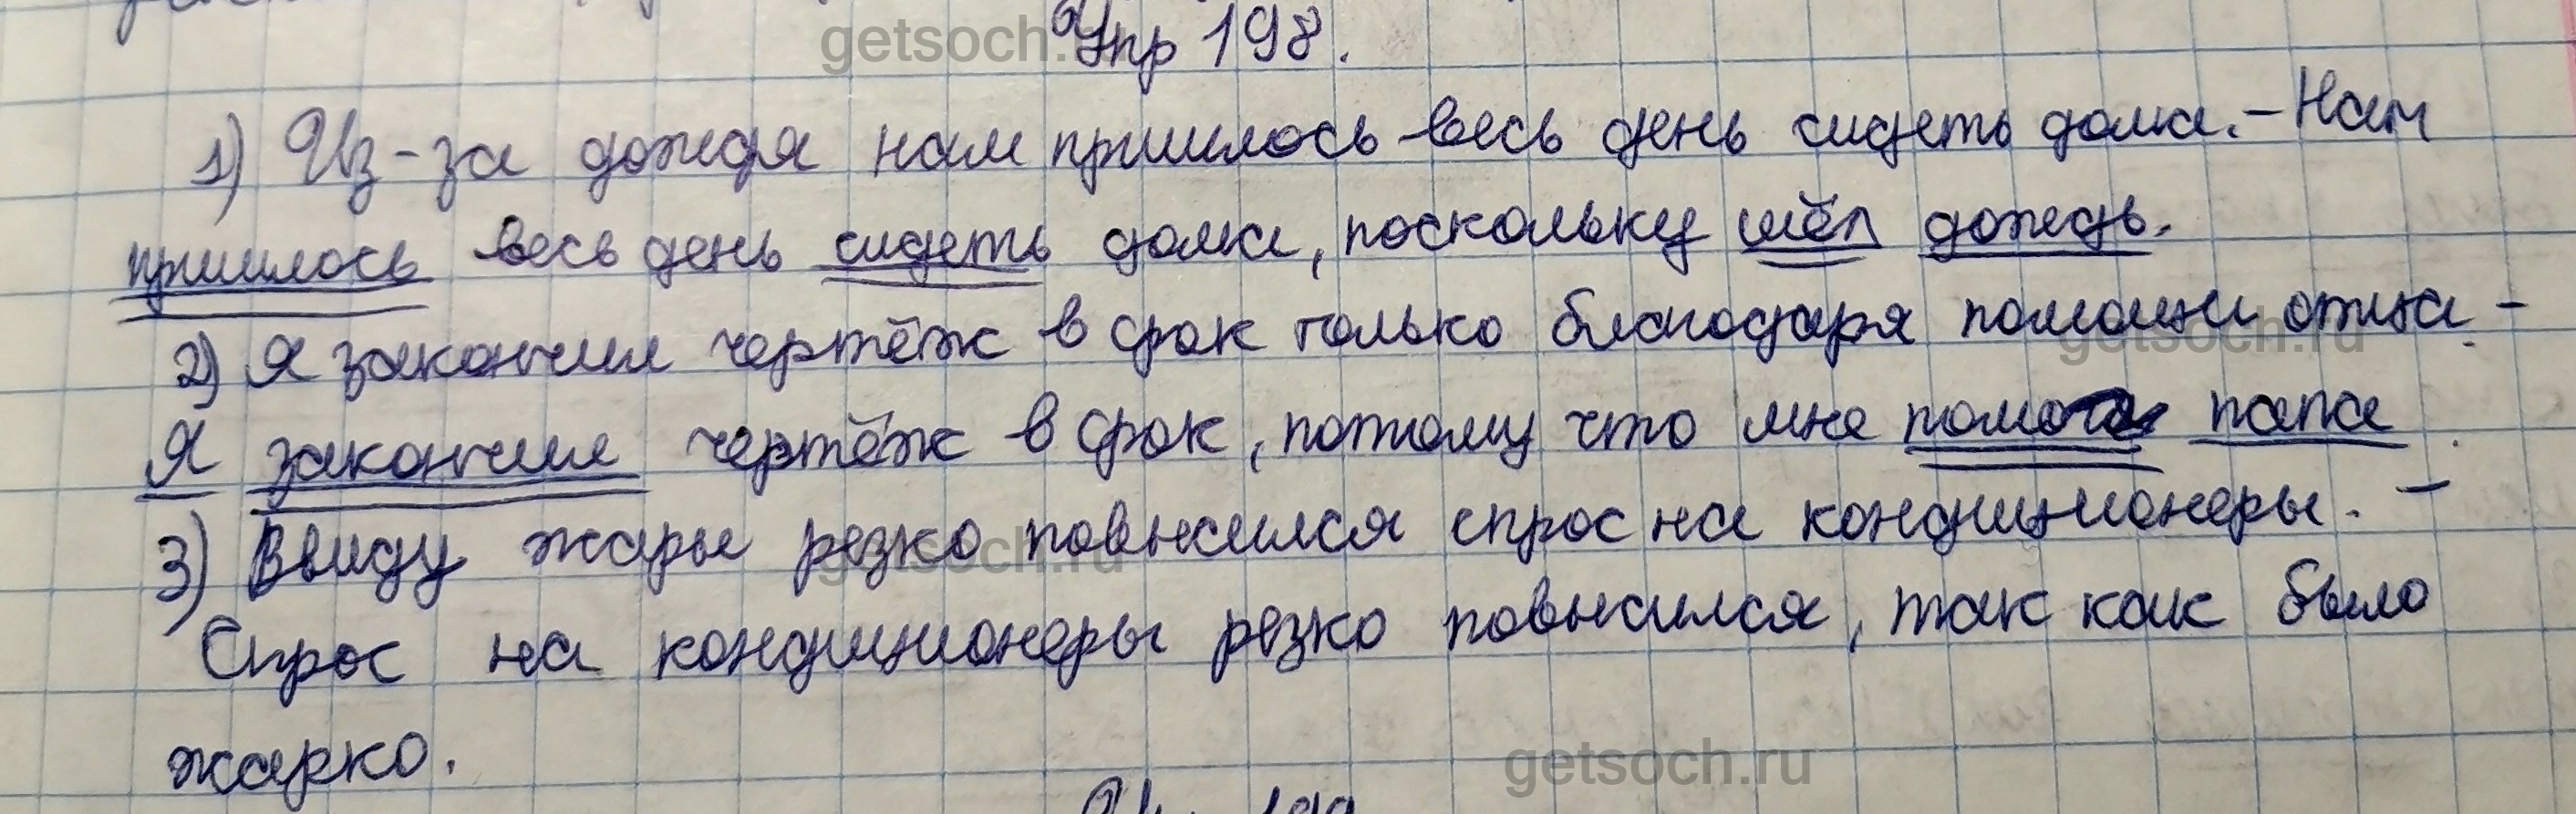 Упр 198.
1) Из-за дождя нам пришлось весь день сидеть дома. – Нам
пришлось весь день сидеть дома, поскольку шёл дождь.
2) Я закончил чертёж в срок только благодаря помощи отца. –
Я закончил чертёж в срок, потому что мне помог папа.
3) Ввиду жары резко повысился спрос на кондиционеры. –
Спрос на кондиционеры резко повысился, так как было
жарко.
getsoch.ru
getsoch.ru
getsoch.ru
getsoch.ru